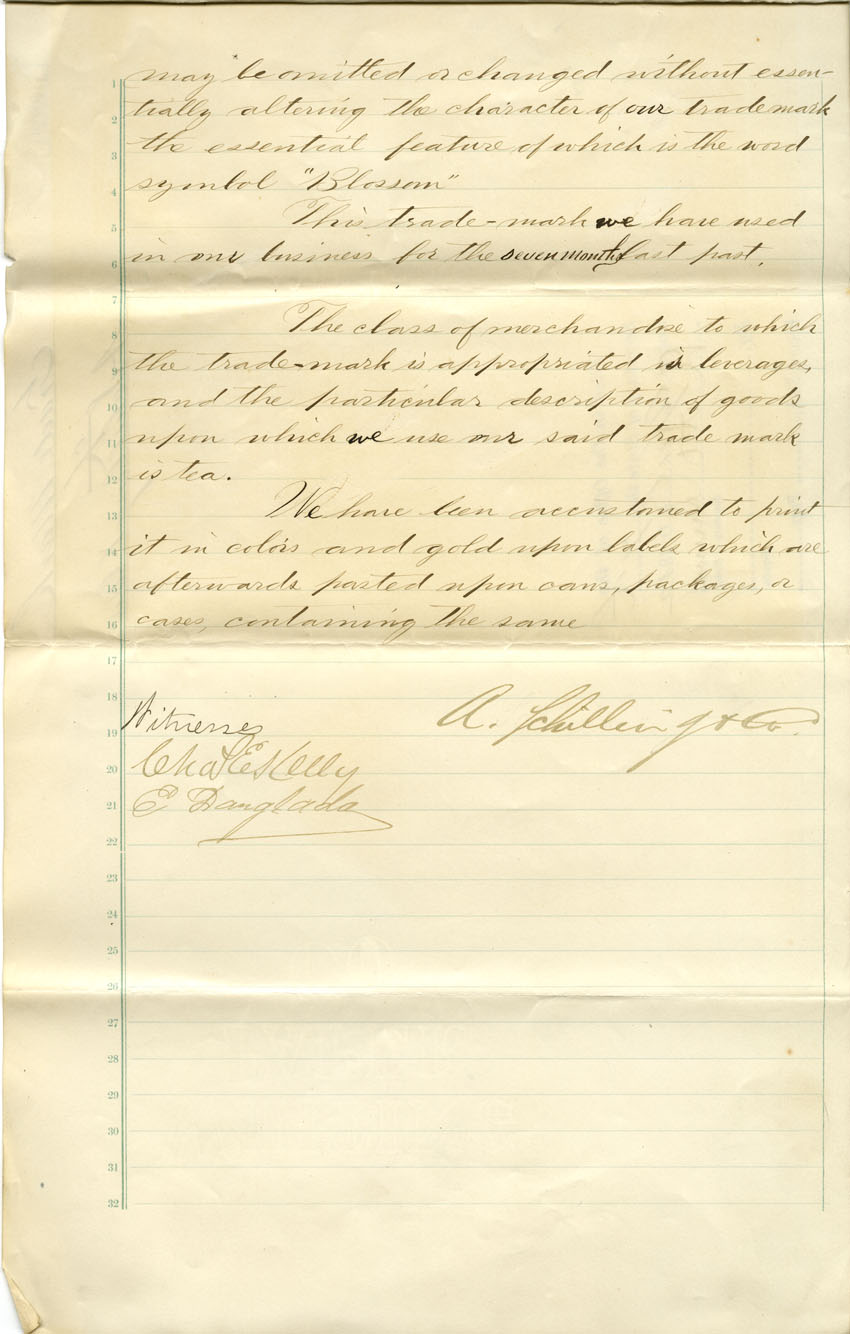 may be omitted or changed without essen-
1
tially altering the character of our trademark
2
the essential feature of which is the word
3
symbol "Blossom"
4
This trade-mark we have used
5
in our business for the seven months last past.
6
7
The class of merchandise to which
8
the trade-mark is appropriated is beverages,
9
and the particular description of goods
10
upon which we use our said trade mark
11
is tea.
12
We have been accustomed to print
13
it in colors and gold upon labels which are
14
afterwards pasted upon cans, packages, or
15
cases, containing the same
16
17
18
Witnesses
A. Schilling & Co.
19
Chas E Kelly
20
E Danglada
21
22
23
24
25
26
27
28
29
30
31
32